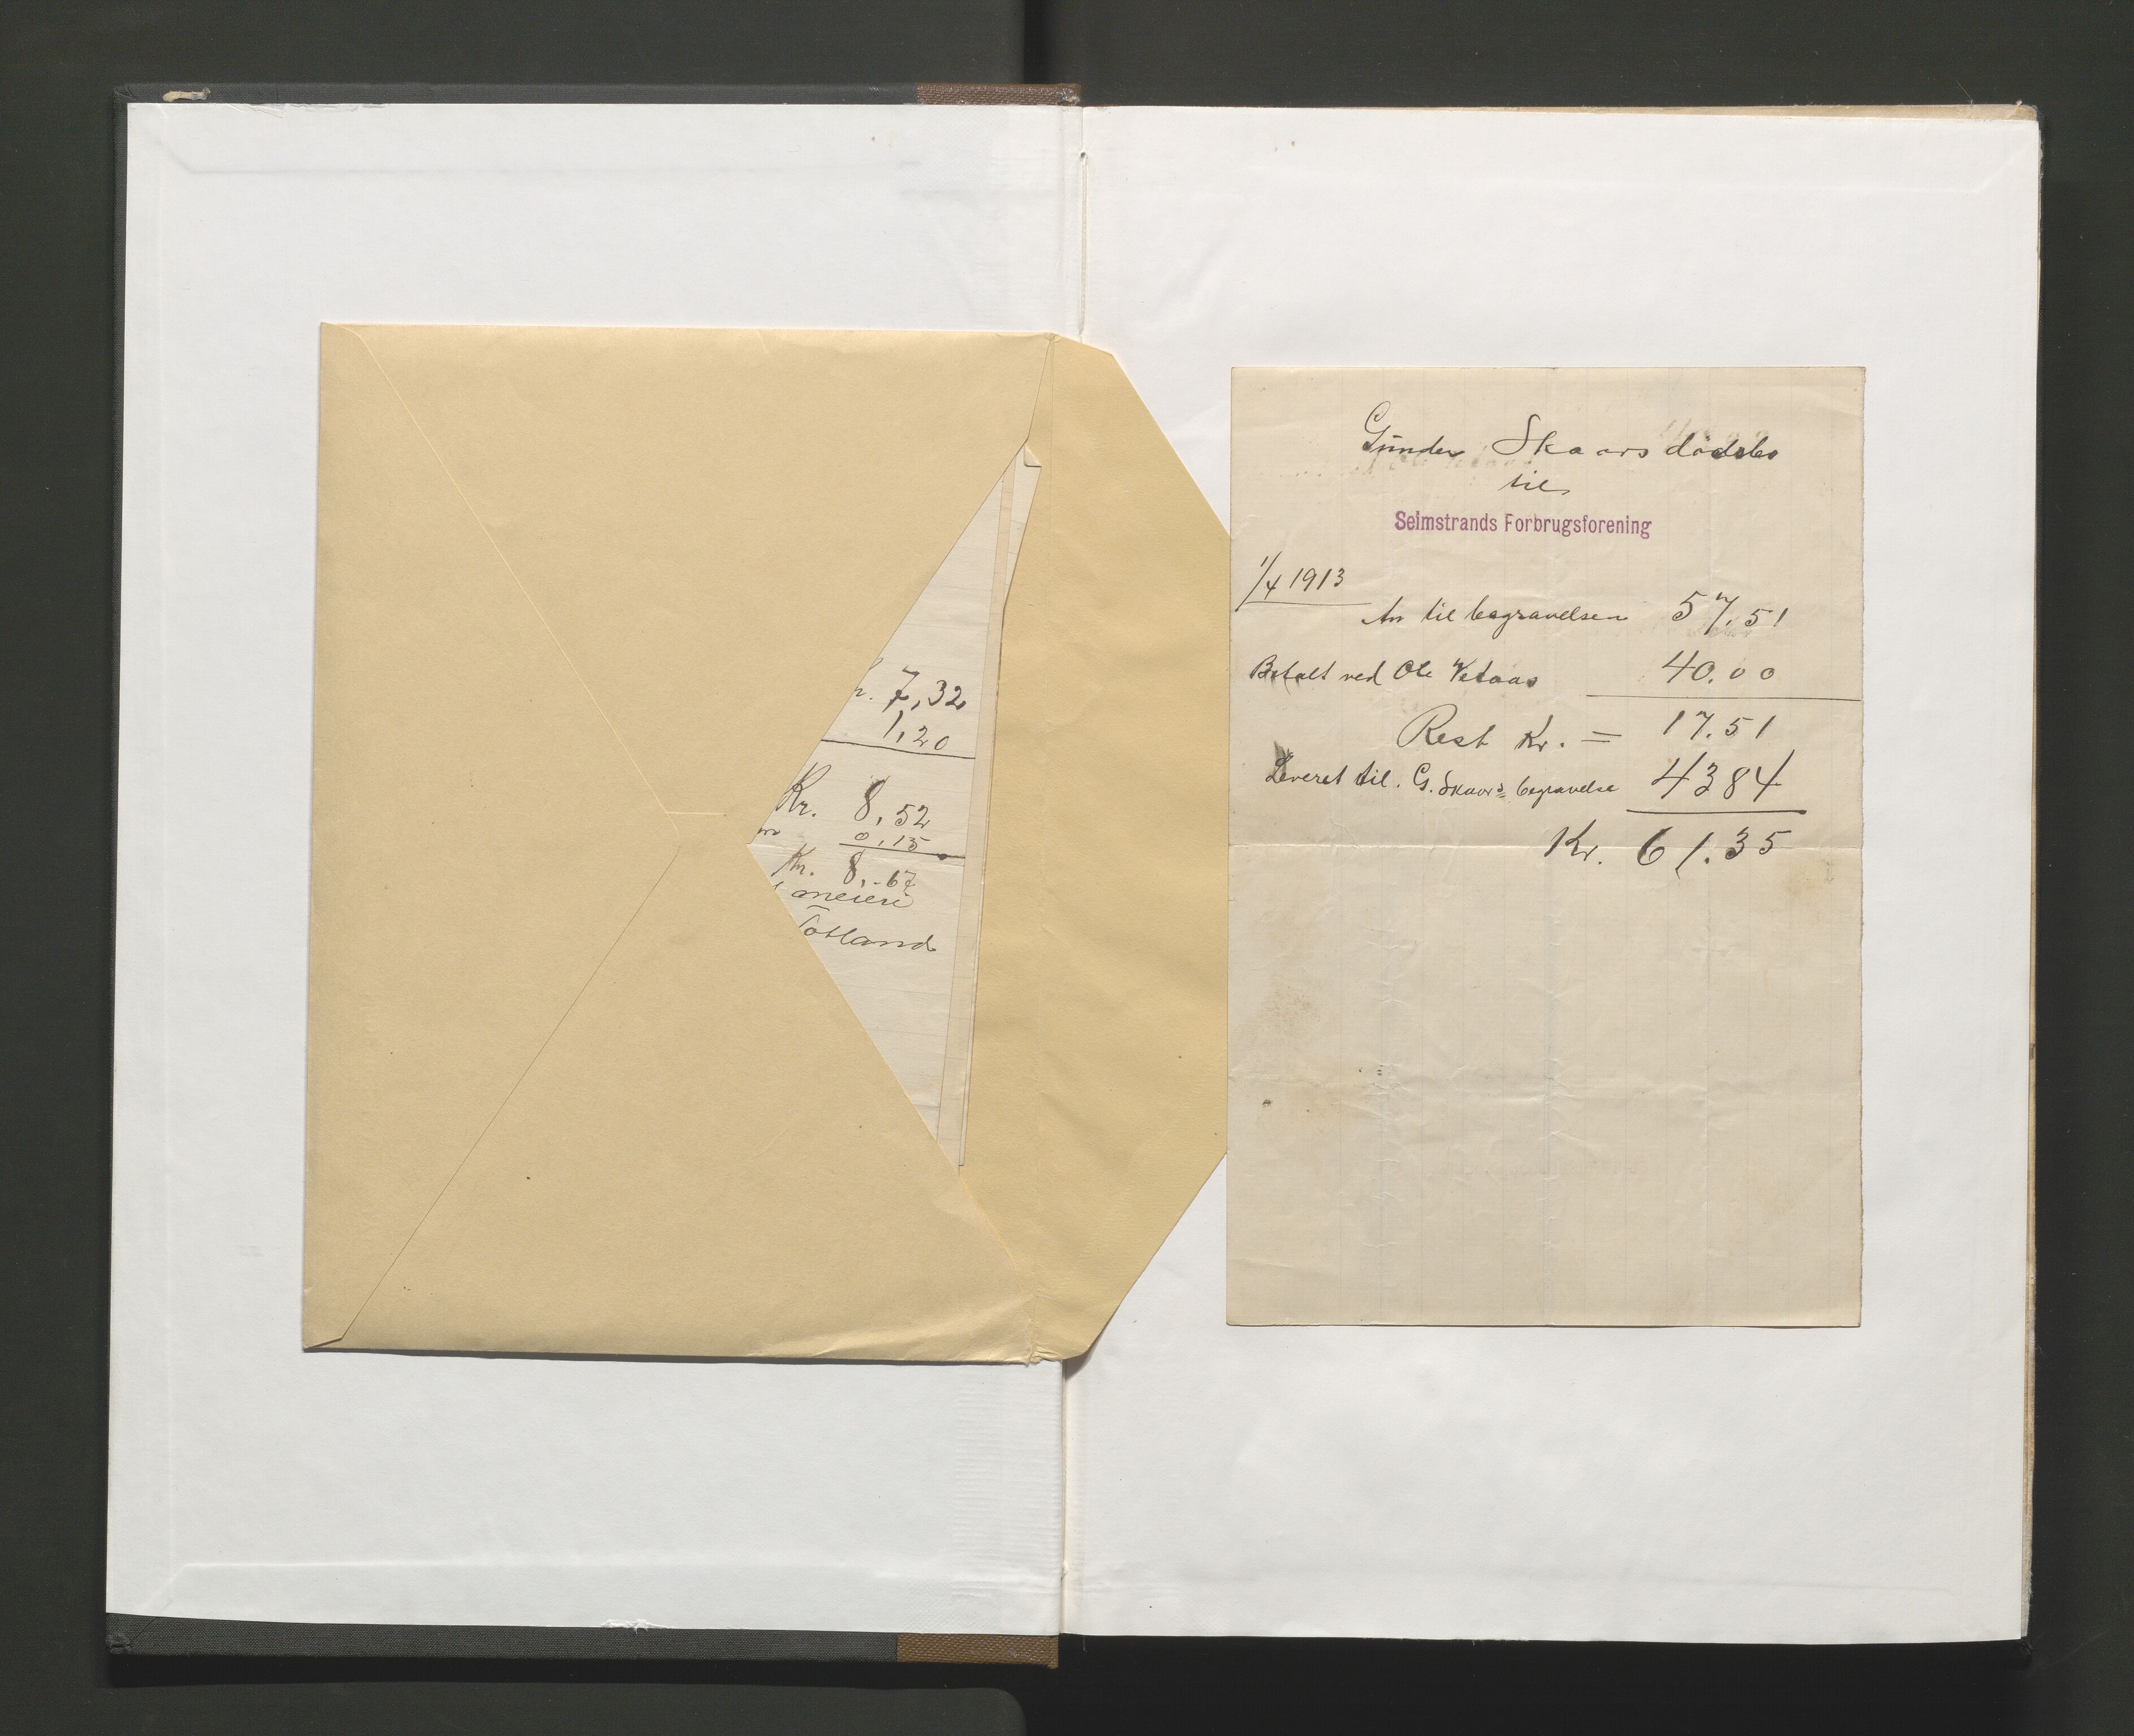 7,32
1,20
Kr. 8,52
0,15
Kr. 8,67
meieri
Totland
Gunder Skaars dödsbo
til
Seimstrands Forbrugsforening
1/4 1913
An til begravelsen 57,51
Betalt ved Ole Vetaas 40.00
Rest Kr. = 17.51
Leveret til. G. Skaars begravelse 4384
Kr. 61.35